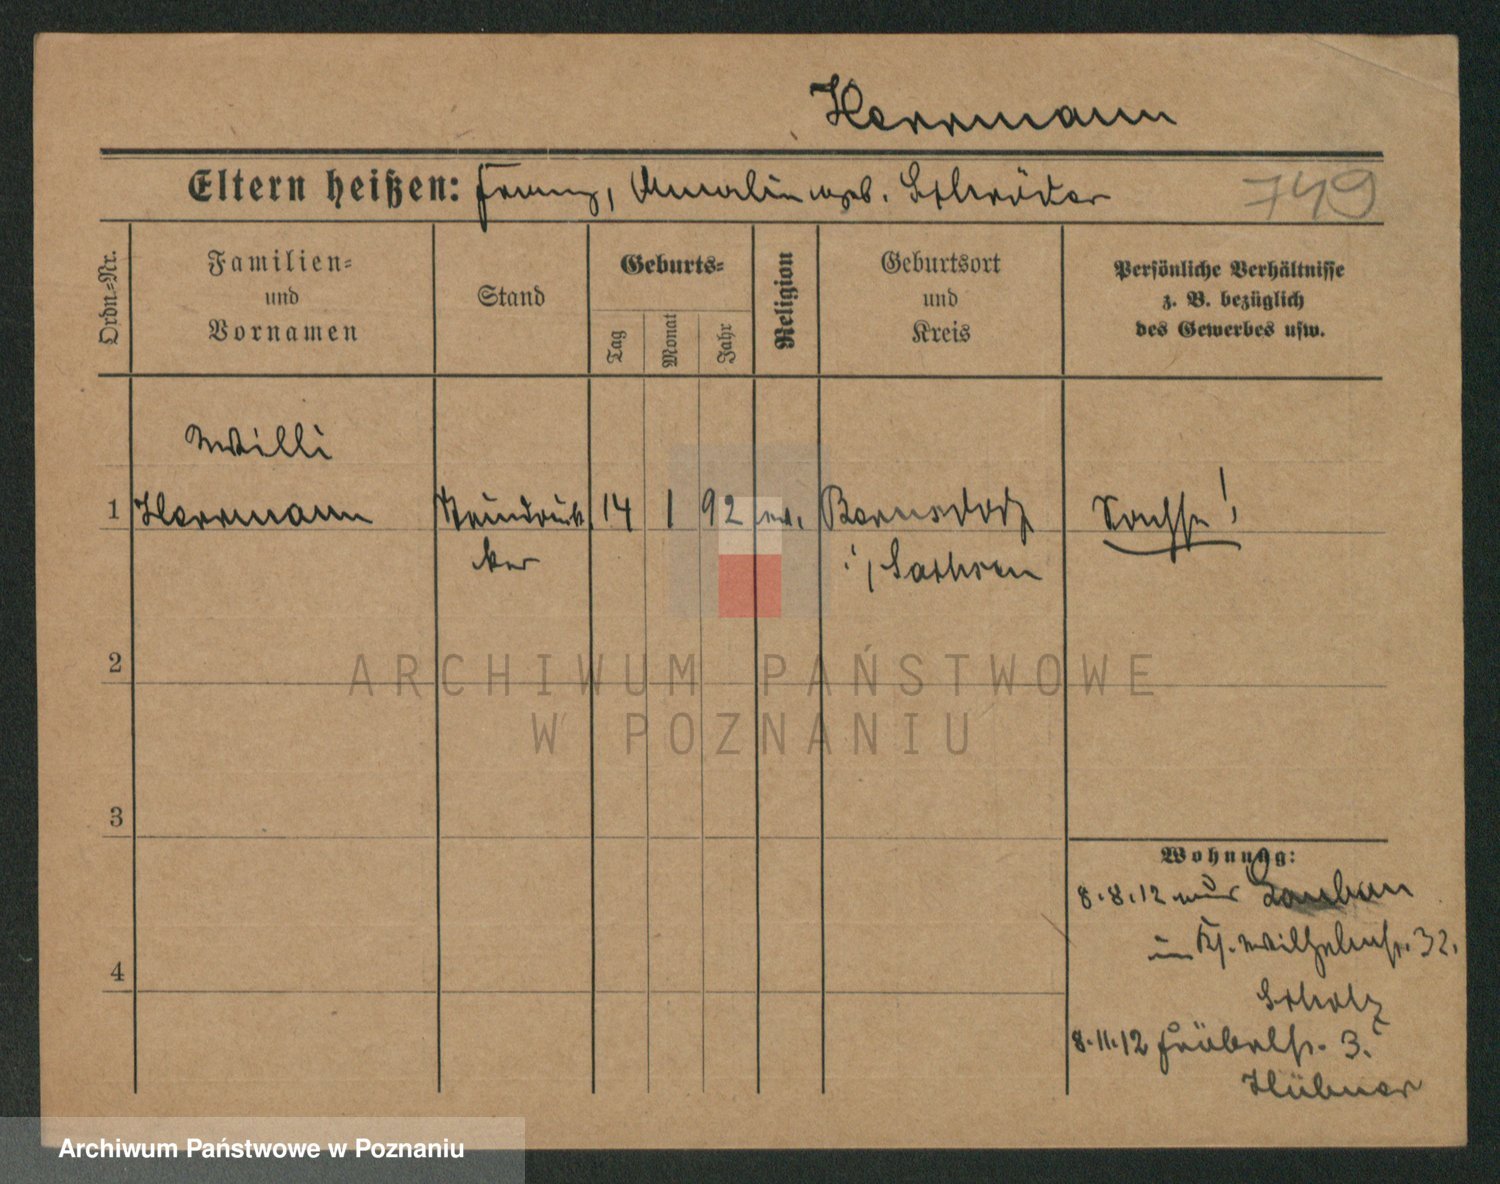 Herrmann
Eltern heißen: Franz, Amalie geb. Schröder
749
Ordn.-Nr.
Familien-
und
Vornamen
Stand
Geburts-
Tag
Monat
Jahr
Religion
Geburtsort
und
Kreis
Persönliche Verhältnisse
z. B. bezüglich
des Gewerbes usw.
Willi
1 Herrmann Steindruck 14 1 92 ev. Bernsdorf Sachse!
ker i/Sachsen
2
ARCHIWUM PAŃSTWOWE
W POZNANIU
3
Wohnung:
8.8.12 aus Lauban
in Wilhelmstr. 32.
Scholz
4
8.11.12 Fröbelstr. 3.
Hübner
Archiwum Państwowe w Poznaniu